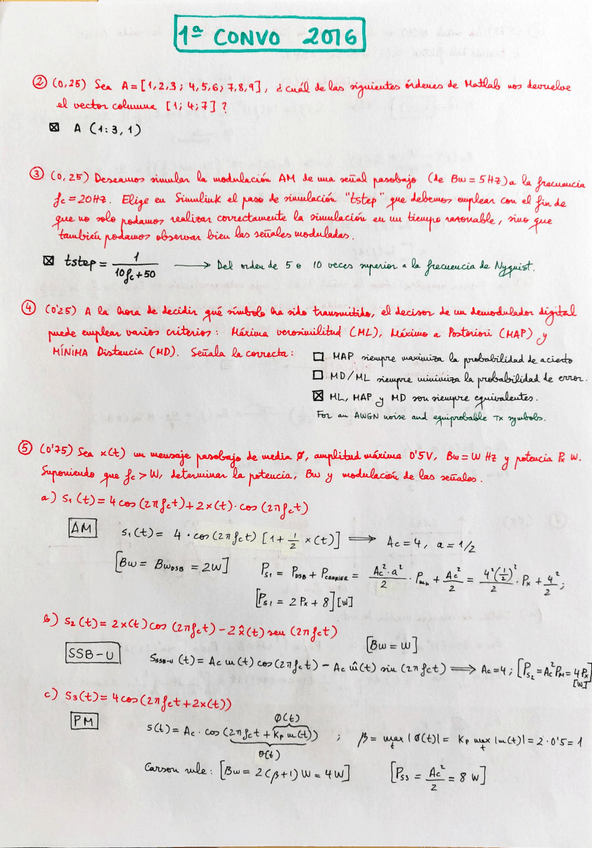 1ª CONVO 2016
② (0,25) Sea A = [1,2,3; 4,5,6; 7,8,9], ¿cuál de las siguientes órdenes de Matlab nos devuelve
el vector columna [1; 4; 7] ?
☒ A (1:3, 1)
③ (0,25) Deseamos simular la modulación AM de una señal pasobajo (de Bw = 5Hz) a la frecuencia
fc = 20Hz. Elige en Simulink el paso de simulación "tstep" que debemos emplear con el fin de
que no solo podamos realizar correctamente la simulación en un tiempo razonable, sino que
también podamos observar bien las señales moduladas.
☒ tstep = 1/(10fc+50) → Del orden de 5 o 10 veces superior a la frecuencia de Nyquist.
④ (0'25) A la hora de decidir qué símbolo ha sido transmitido, el decisor de un demodulador digital
puede emplear varios criterios: Máxima verosimilitud (ML), Máximo a Posteriori (MAP) y
MÍNIMA Distancia (MD). Señala la correcta:
☐ MAP siempre maximiza la probabilidad de acierto
☐ MD/ML siempre minimiza la probabilidad de error.
☒ ML, MAP y MD son siempre equivalentes.
For an AWGN noise and equiprobable Tx symbols.
⑤ (0'75) Sea x(t) un mensaje pasobajo de media ∅, amplitud máxima 0'5V, Bw = W Hz y potencia Px W.
Suponiendo que fc > W, determinar la potencia, Bw y modulación de las señales.
a) S1(t) = 4cos(2πfct) + 2x(t)·cos(2πfct)
AM
S1(t) = 4·cos(2πfct) [1 + 1/2 x(t)] ⟹ Ac = 4, a = 1/2
[Bw = BwDSB = 2W]
PS1 = PDSB + PCARRIER = Ac²·a²/2 · Pmn + Ac²/2 = 4²(1/2)²/2 · Px + 4²/2;
[PS1 = 2Px + 8] [W]
b) S2(t) = 2x(t)cos(2πfct) - 2x̂(t)sen(2πfct)
[Bw = W]
SSB-U
SSSB-U(t) = Ac m(t)cos(2πfct) - Ac m̂(t) sin(2πfct) ⟹ Ac = 4; [PS2 = Ac²PM = 4Px] [W]
c) S3(t) = 4cos(2πfct + 2x(t))
PM
∅(t)
s(t) = Ac · cos(2πfct + Kp m(t)) ; β = max t |∅(t)| = Kp max t |m(t)| = 2·0'5 = 1
θ(t)
Carson rule: [Bw = 2(β+1)W = 4W] [PS3 = Ac²/2 = 8 W]